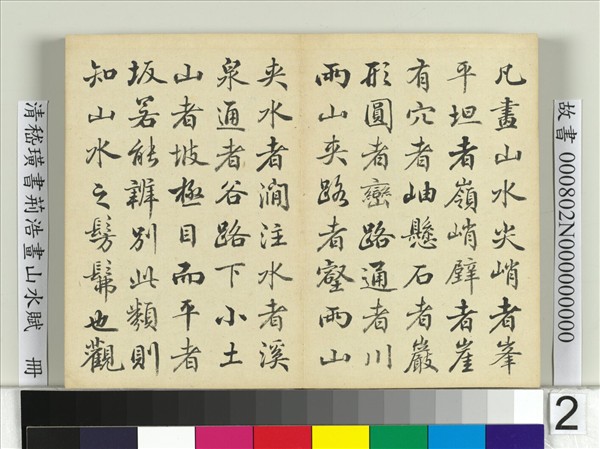 故書 000802N000000000
凡畫山水尖峭者峯
平坦者嶺峭壁者崖
有穴者岫懸石者巖
形圓者巒路通者川
兩山夾路者壑兩山
夾水者澗注水者溪
泉通者谷路下小土
山者坡極目而平者
坂若能辨別此類則
知山水之髣髴也觀
清嵇璜書荊浩畫山水賦 冊
2